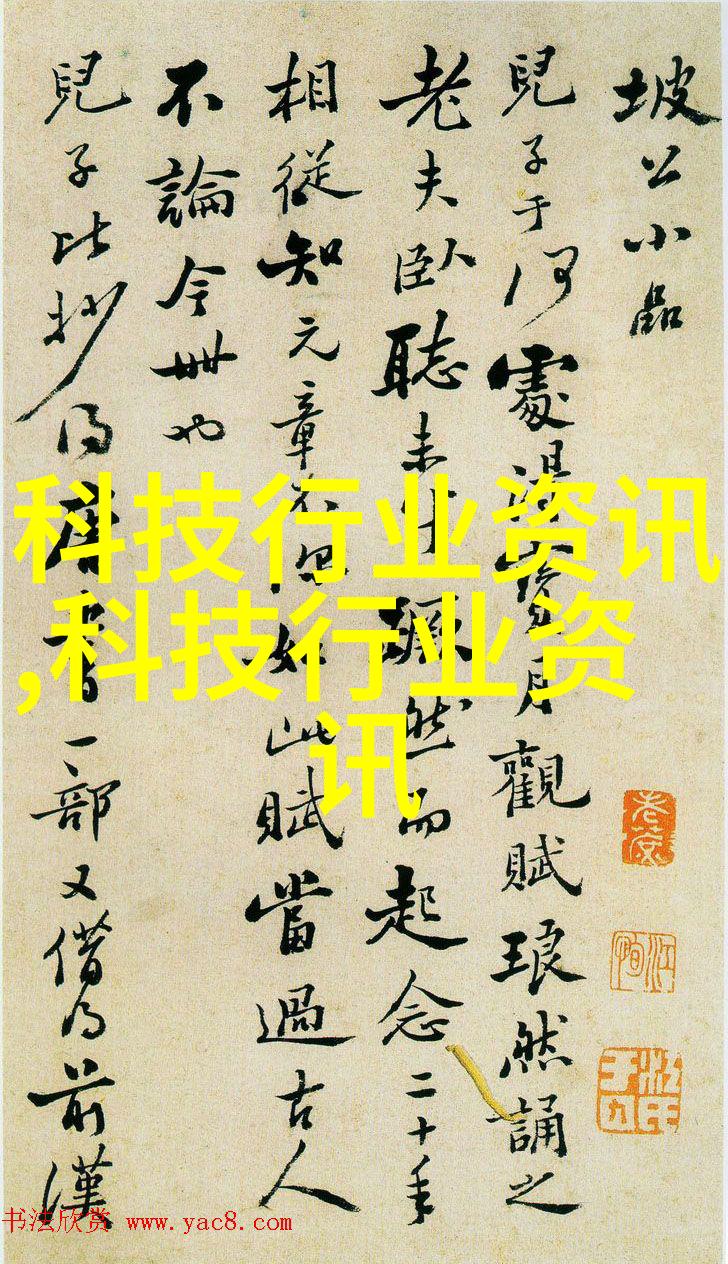 坡公小品
兒子于何處得寶月觀賦琅然誦之
老夫臥聽未半然而起念二十年
相從知元章不如此賦當過古人
不論今世也
兒子比抄得唐書一部又借得前漢
科技行业资讯
,科技行业资
讯
书法欣赏 www.yac8.com